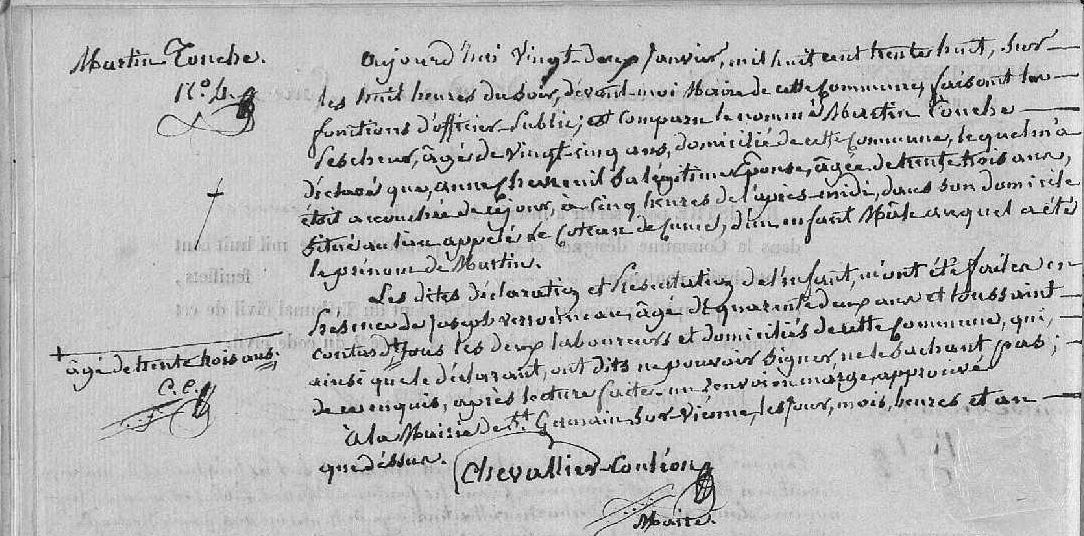 Martin Touche.
N°. 4.
aujourd'hui vingt-deux janvier, mil huit cent trente huit, sur
les huit heures du soir, devant moi Maire de cette Commune, faisant les
fonctions d'officier public; est comparu le nommé Martin Touche
âgé de vingt-cinq ans, domicilié de cette Commune, lequel m'a
déclaré que, anne Chereneuil sa légitime Épouse, âgée de trente trois ans,
était accouchée de ce jour, a cinq heures de l'après-midi, dans son domicile
situé au lieu appelé le Coteau de d'un enfant Mâle auquel a été
le prénom de Martin.
Les dites déclaration et Présentation de l'enfant, m'ont été faites en
Présence de joseph âgé de quarante deux ans et toussaint
coutas † tous les deux laboureurs et domiciliés de cette Commune, qui,
ainsi que le déclarant, ont dits ne pouvoir signer ne le sachant pas;
de ce enquis, après lecture faite. un renvoi en marge, approuvé
à la Mairie de St. Germain-sur-Vienne, les jour, mois, heures et an
que déssus.
† âgé de trente trois ans.
C. C.
Chevallier-Conléon
Maire.